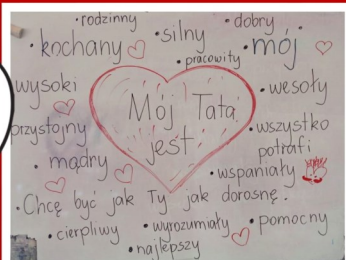 • rodzinny
• dobry
• kochany
• silny
• mój
• pracowity
wysoki
• wesoły
Mój Tata
jest
przystojny
• wszystko
potrafi
• mądry
• wspaniały
• Chcę być jak Ty jak dorosnę.
• cierpliwy
• wyrozumiały
• pomocny
• najlepszy